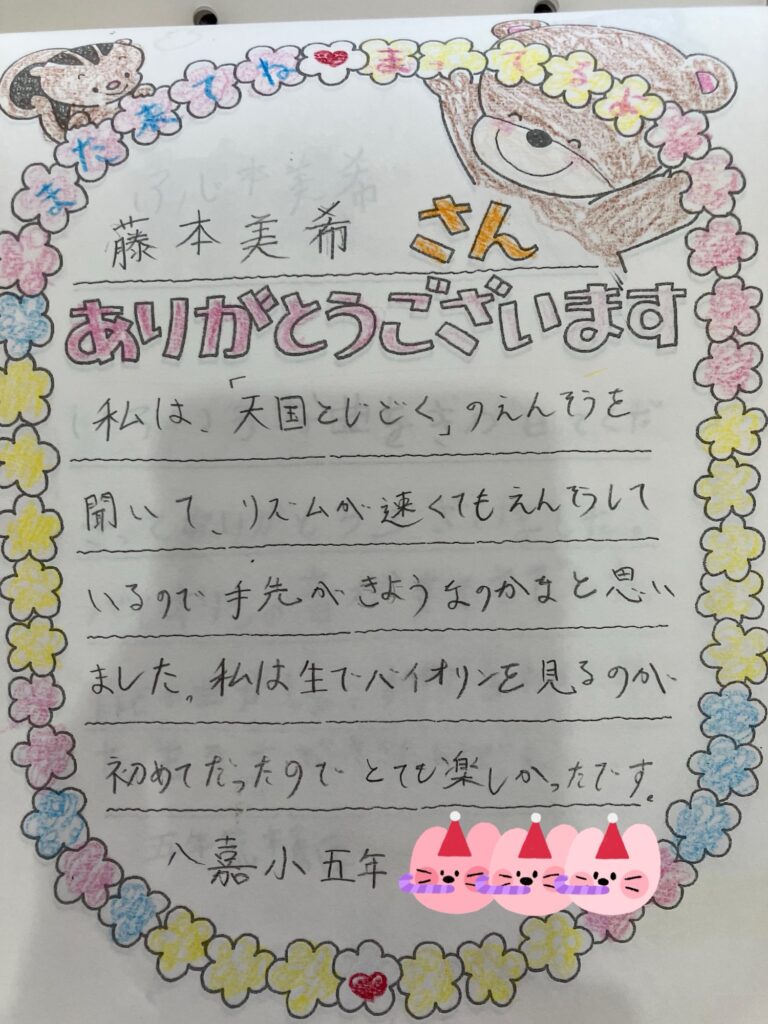 また来てね♥まってるよ
藤本美希 さん
ありがとうございます
私は、「天国とじごく」のえんそうを
聞いて、リズムが速くてもえんそうして
いるので手先がきようなのかなと思い
ました。私は生でバイオリンを見るのが
初めてだったのでとても楽しかったです。
八嘉小五年